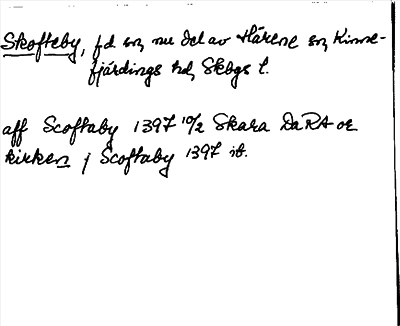 Skofteby, fd sn, nu del av Härene sn, Kinne-
fjärdings hd, Skbgs l.
aff Scoftaby 1397 10/2 Skara DaRA or
kirken j Scoftaby 1397 ib.